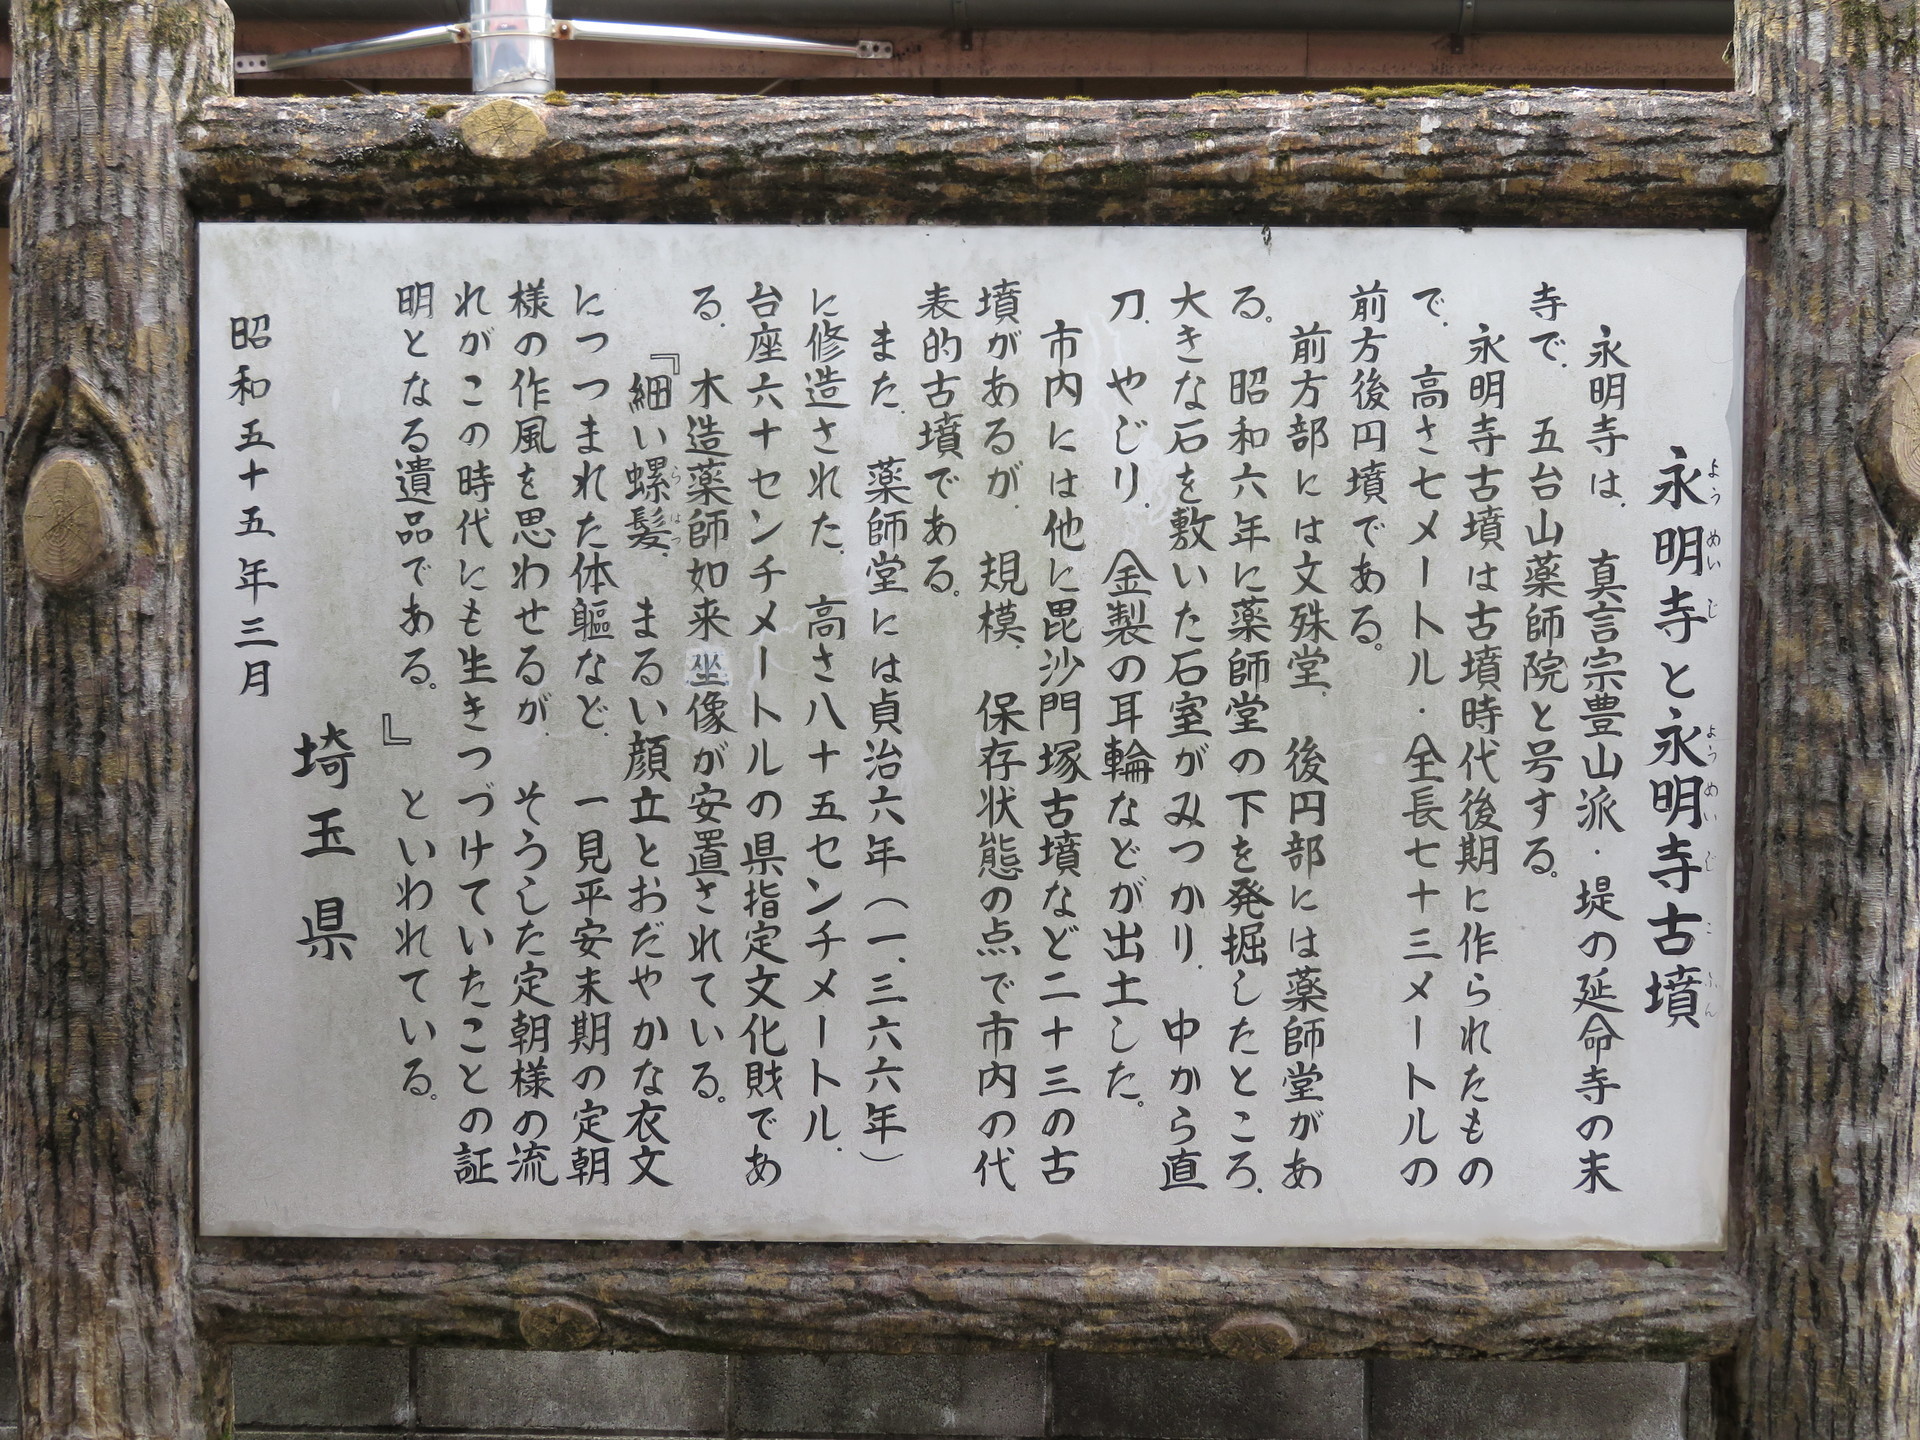 永明寺と永明寺古墳
永明寺は、真言宗豊山派・堤の延命寺の末
寺で、五台山薬師院と号する。
永明寺古墳は古墳時代後期に作られたもの
で、高さ七メートル・全長七十三メートルの
前方後円墳である。
前方部には文殊堂、後円部には薬師堂があ
る。昭和六年に薬師堂の下を発掘したところ、
大きな石を敷いた石室がみつかり、中から直
刀、やじり、金製の耳輪などが出土した。
市内には他に毘沙門塚古墳など二十三の古
墳があるが、規模、保存状態の点で市内の代
表的古墳である。
また、薬師堂には貞治六年（一、三六六年）
に修造された、高さ八十五センチメートル、
台座六十センチメートルの県指定文化財であ
る、木造薬師如来坐像が安置されている。
『細い螺髪、まるい顔立とおだやかな衣文
につつまれた体軀など、一見平安末期の定朝
様の作風を思わせるが、そうした定朝様の流
れがこの時代にも生きつづけていたことの証
明となる遺品である。』といわれている。
埼玉県
昭和五十五年三月